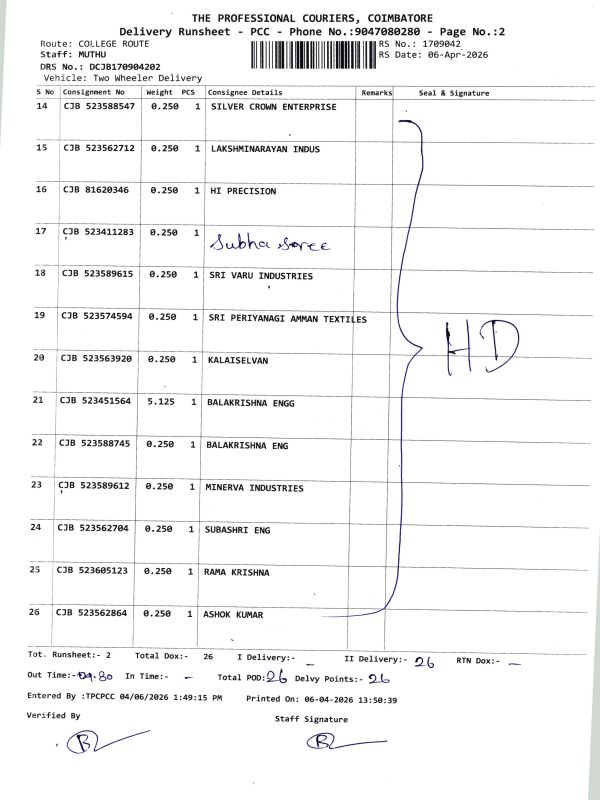 THE PROFESSIONAL COURIERS, COIMBATORE
Delivery Runsheet - PCC - Phone No.:9047080280 - Page No.:2
Route: COLLEGE ROUTE RS No.: 1709042
Staff: MUTHU RS Date: 06-Apr-2026
DRS No.: DCJB170904202
Vehicle: Two Wheeler Delivery
S No Consignment No Weight PCS Consignee Details Remarks Seal & Signature
14 CJB 523588547 0.250 1 SILVER CROWN ENTERPRISE
15 CJB 523562712 0.250 1 LAKSHMINARAYAN INDUS
16 CJB 81620346 0.250 1 HI PRECISION
17 CJB 523411283 0.250 1 Subha Soree
18 CJB 523589615 0.250 1 SRI VARU INDUSTRIES
19 CJB 523574594 0.250 1 SRI PERIYANAGI AMMAN TEXTILES
HD
20 CJB 523563920 0.250 1 KALAISELVAN
21 CJB 523451564 5.125 1 BALAKRISHNA ENGG
22 CJB 523588745 0.250 1 BALAKRISHNA ENG
23 CJB 523589612 0.250 1 MINERVA INDUSTRIES
24 CJB 523562704 0.250 1 SUBASHRI ENG
25 CJB 523605123 0.250 1 RAMA KRISHNA
26 CJB 523562864 0.250 1 ASHOK KUMAR
Tot. Runsheet:- 2 Total Dox:- 26 I Delivery:- _ II Delivery:- 26 RTN Dox:- —
Out Time:- In Time:- - Total POD: 26 Delvy Points:- 26
Entered By :TPCPCC 04/06/2026 1:49:15 PM Printed On: 06-04-2026 13:50:39
Verified By Staff Signature